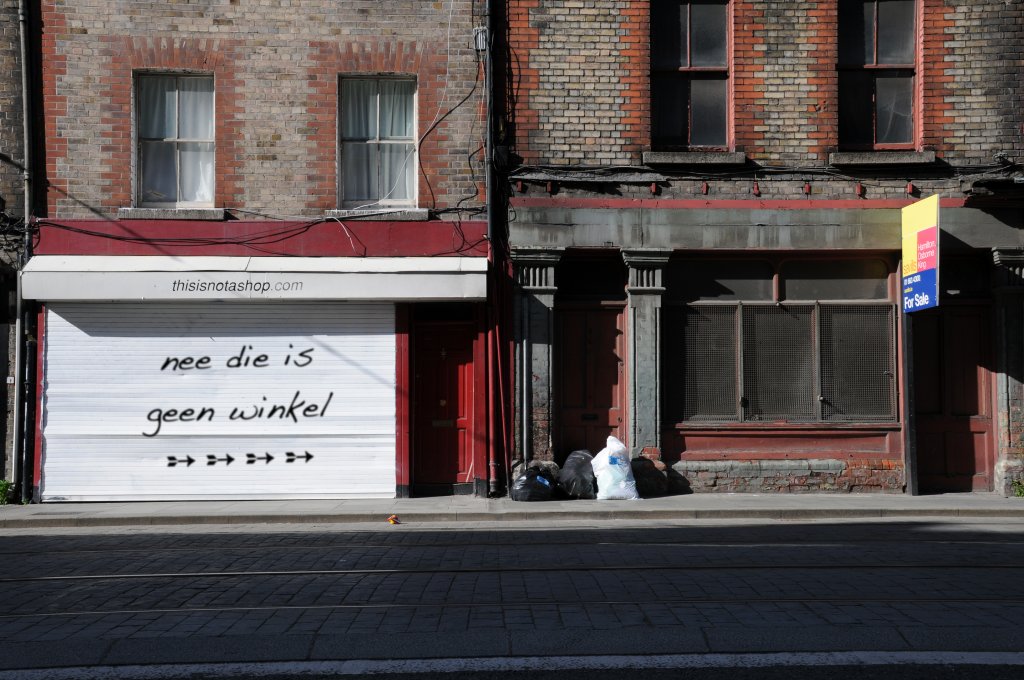 thisisnotashop.com
nee die is
geen winkel
Hamilton
Osborne
King
For Sale